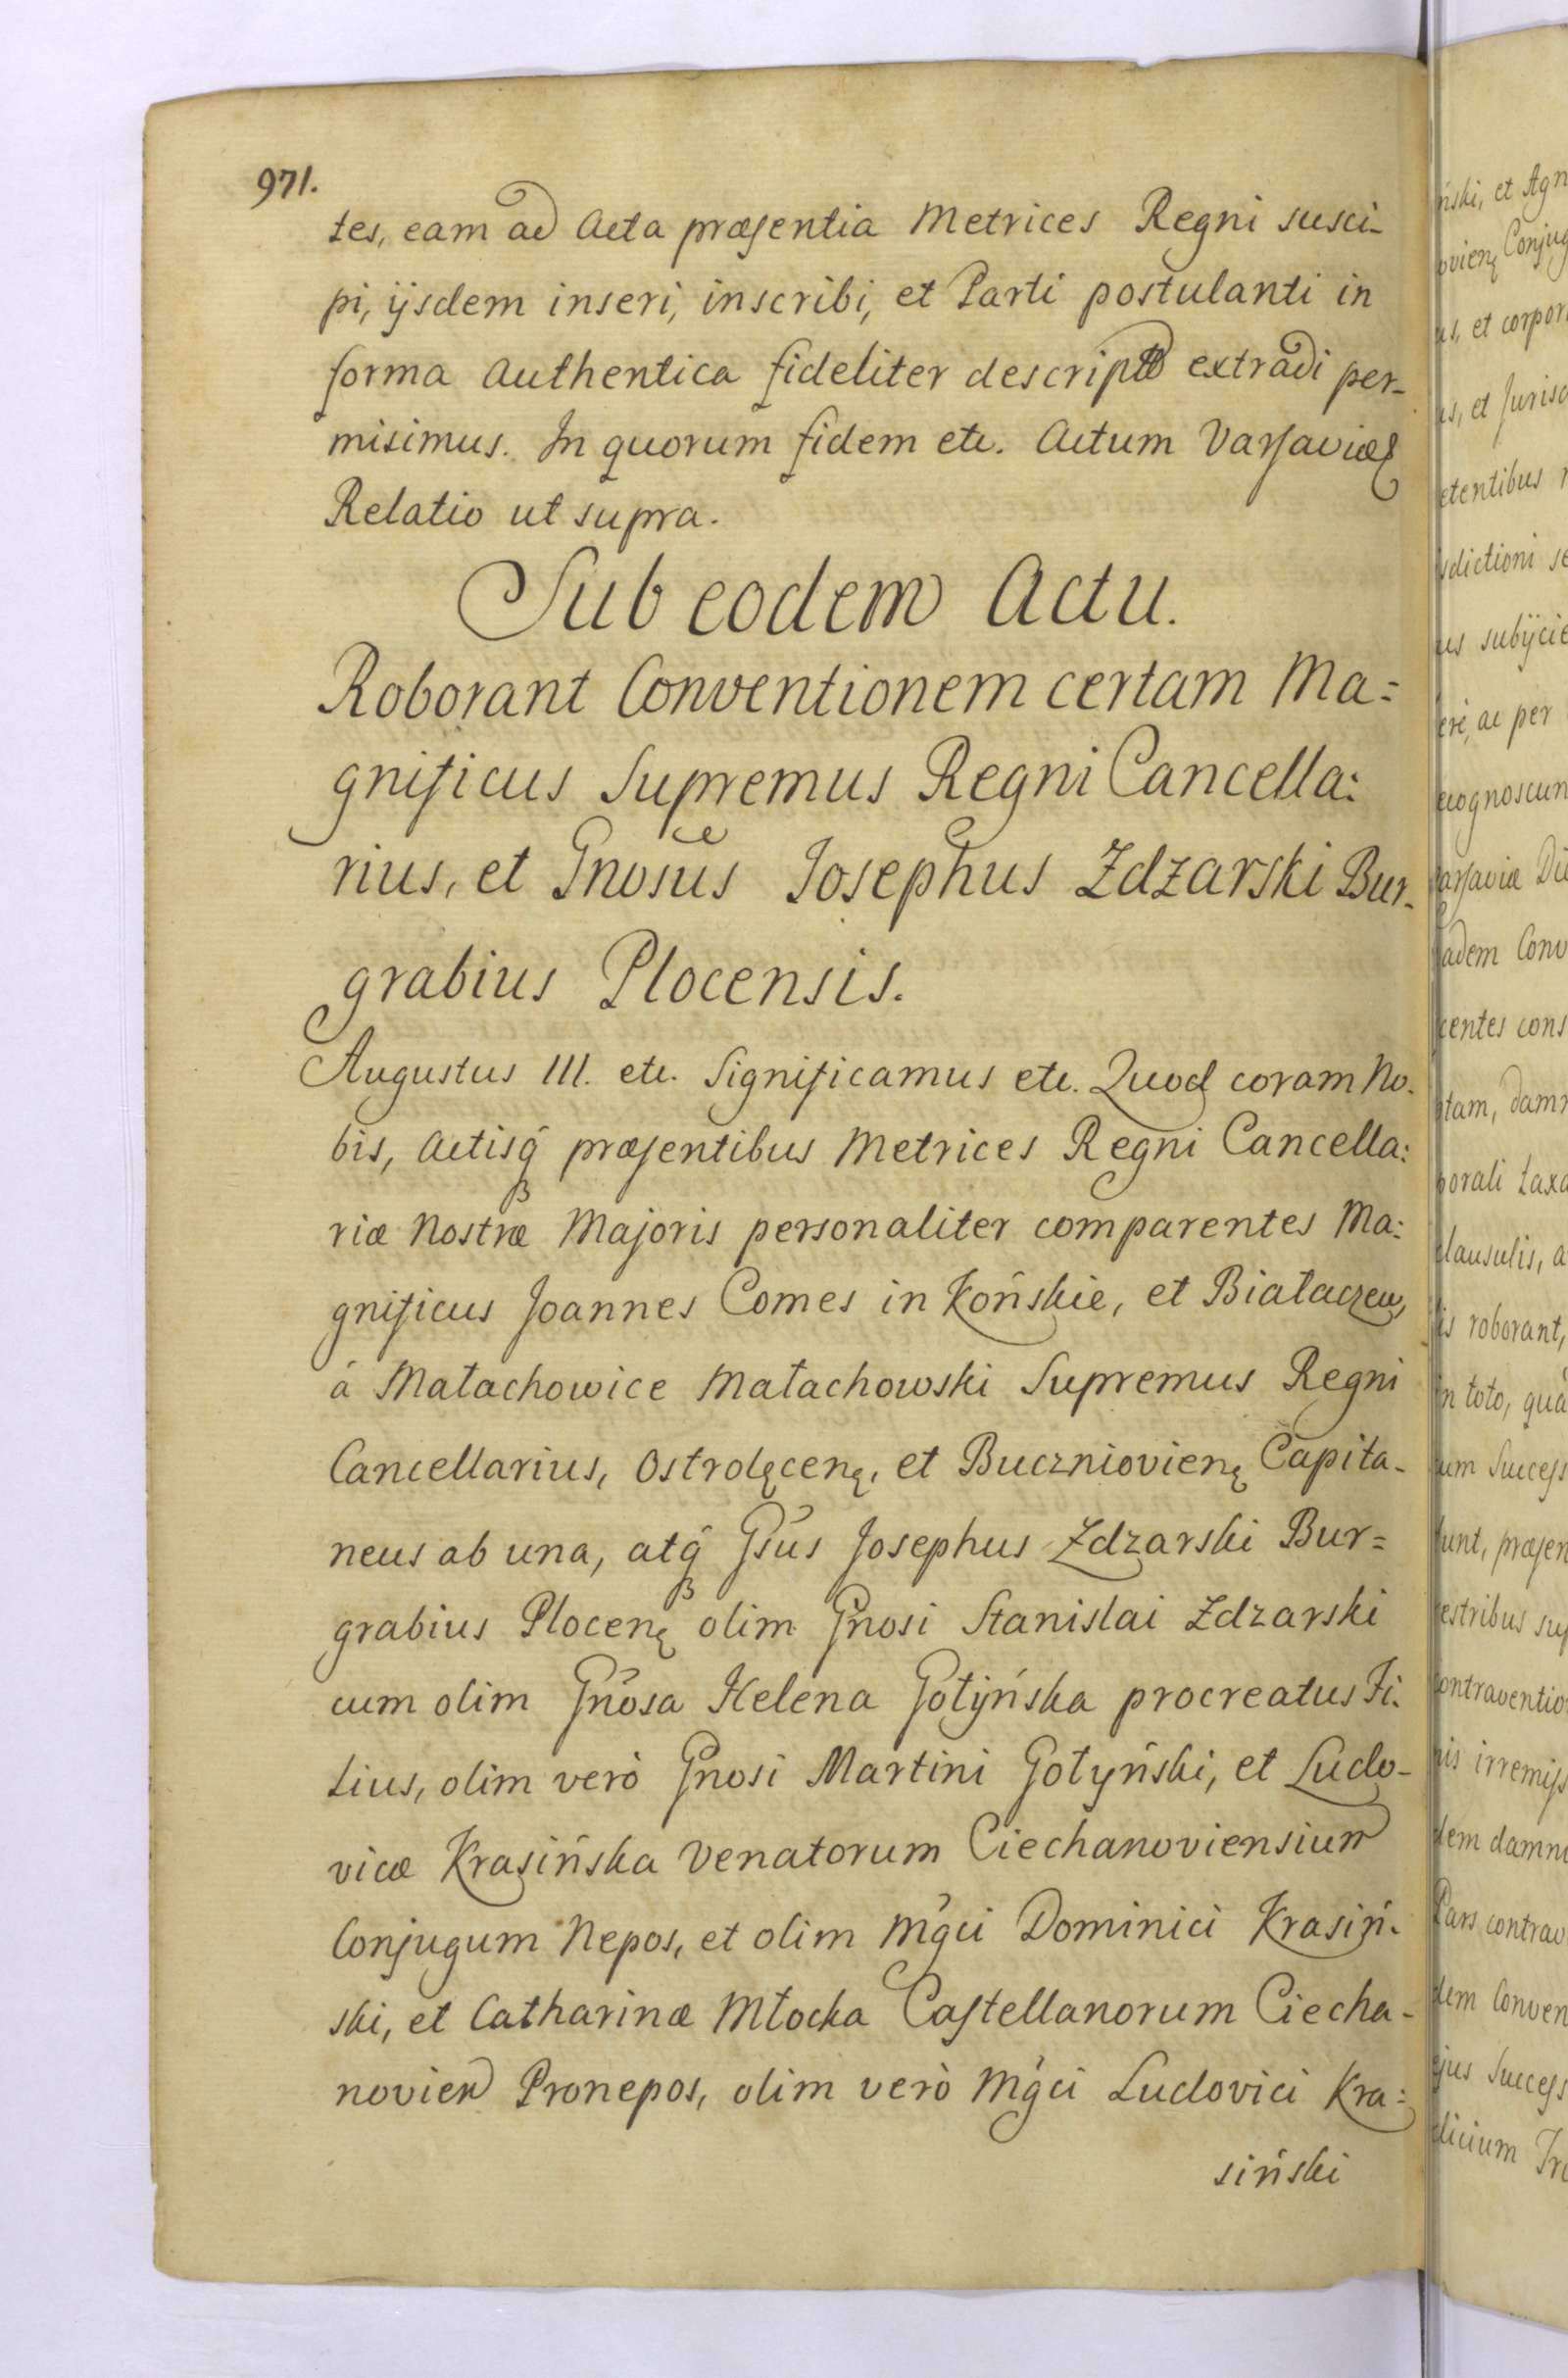 971.
tes, eam ad Acta præsentia Metrices Regni susci-
pi, ijsdem inseri, inscribi, et Parti postulanti in
forma Authentica fideliter extradi per-
misimus. In quorum fidem etc. Actum Varsaviæ
Relatio ut supra.
Sub eodem Actu.
Roborant Conventionem certam Ma=
gnificus Supremus Regni Cancella:
rius, et Gnosus Josephus Zdzarski Bur-
grabius Plocensis.
Augustus III. etc. Significamus etc. Quod coram No-
bis, Actisq̃ præsentibus Metrices Regni Cancella:
riæ Nostræ Majoris personaliter comparentes Ma:
gnificus Joannes Comes in Końskie, et Białaczew,
á Małachowice Małachowski Supremus Regni
Cancellarius, Ostrolęcenę, et Buczniovienę Capita-
neus ab una, atq̃ Gsus Josephus Zdzarski Bur=
grabius Plocenę olim Gnosi Stanislai Zdzarski
cum olim Gnosa Helena Gołyńska procreatus Fi-
lius, olim verò Gnosi Martini Gołyński, et Ludo-
vicæ Krasińska Venatorum Ciechanoviensium
Conjugum Nepos, et olim Mgci Dominici Krasiń-
ski, et Catharinæ Młocka Castellanorum Ciecha-
novien Pronepos, olim verò Mgci Ludovici Kra=
siński
ński, et Agn
ovienę Conjug
us, et corpor
us, et Jurisd
etentibus
sdictioni se
us subijcie
eri, ac per
ecognoscun
arsaviæ Die
adem Conv
centes cons
tam, damn
porali taxa
clausulis, a
is roborant,
in toto, qua
um Success
unt, præsen
estribus sup
ontraventio
nis irremiss
dem damni
Pars contrav
dem Conven
ejus Success
dicium Tri